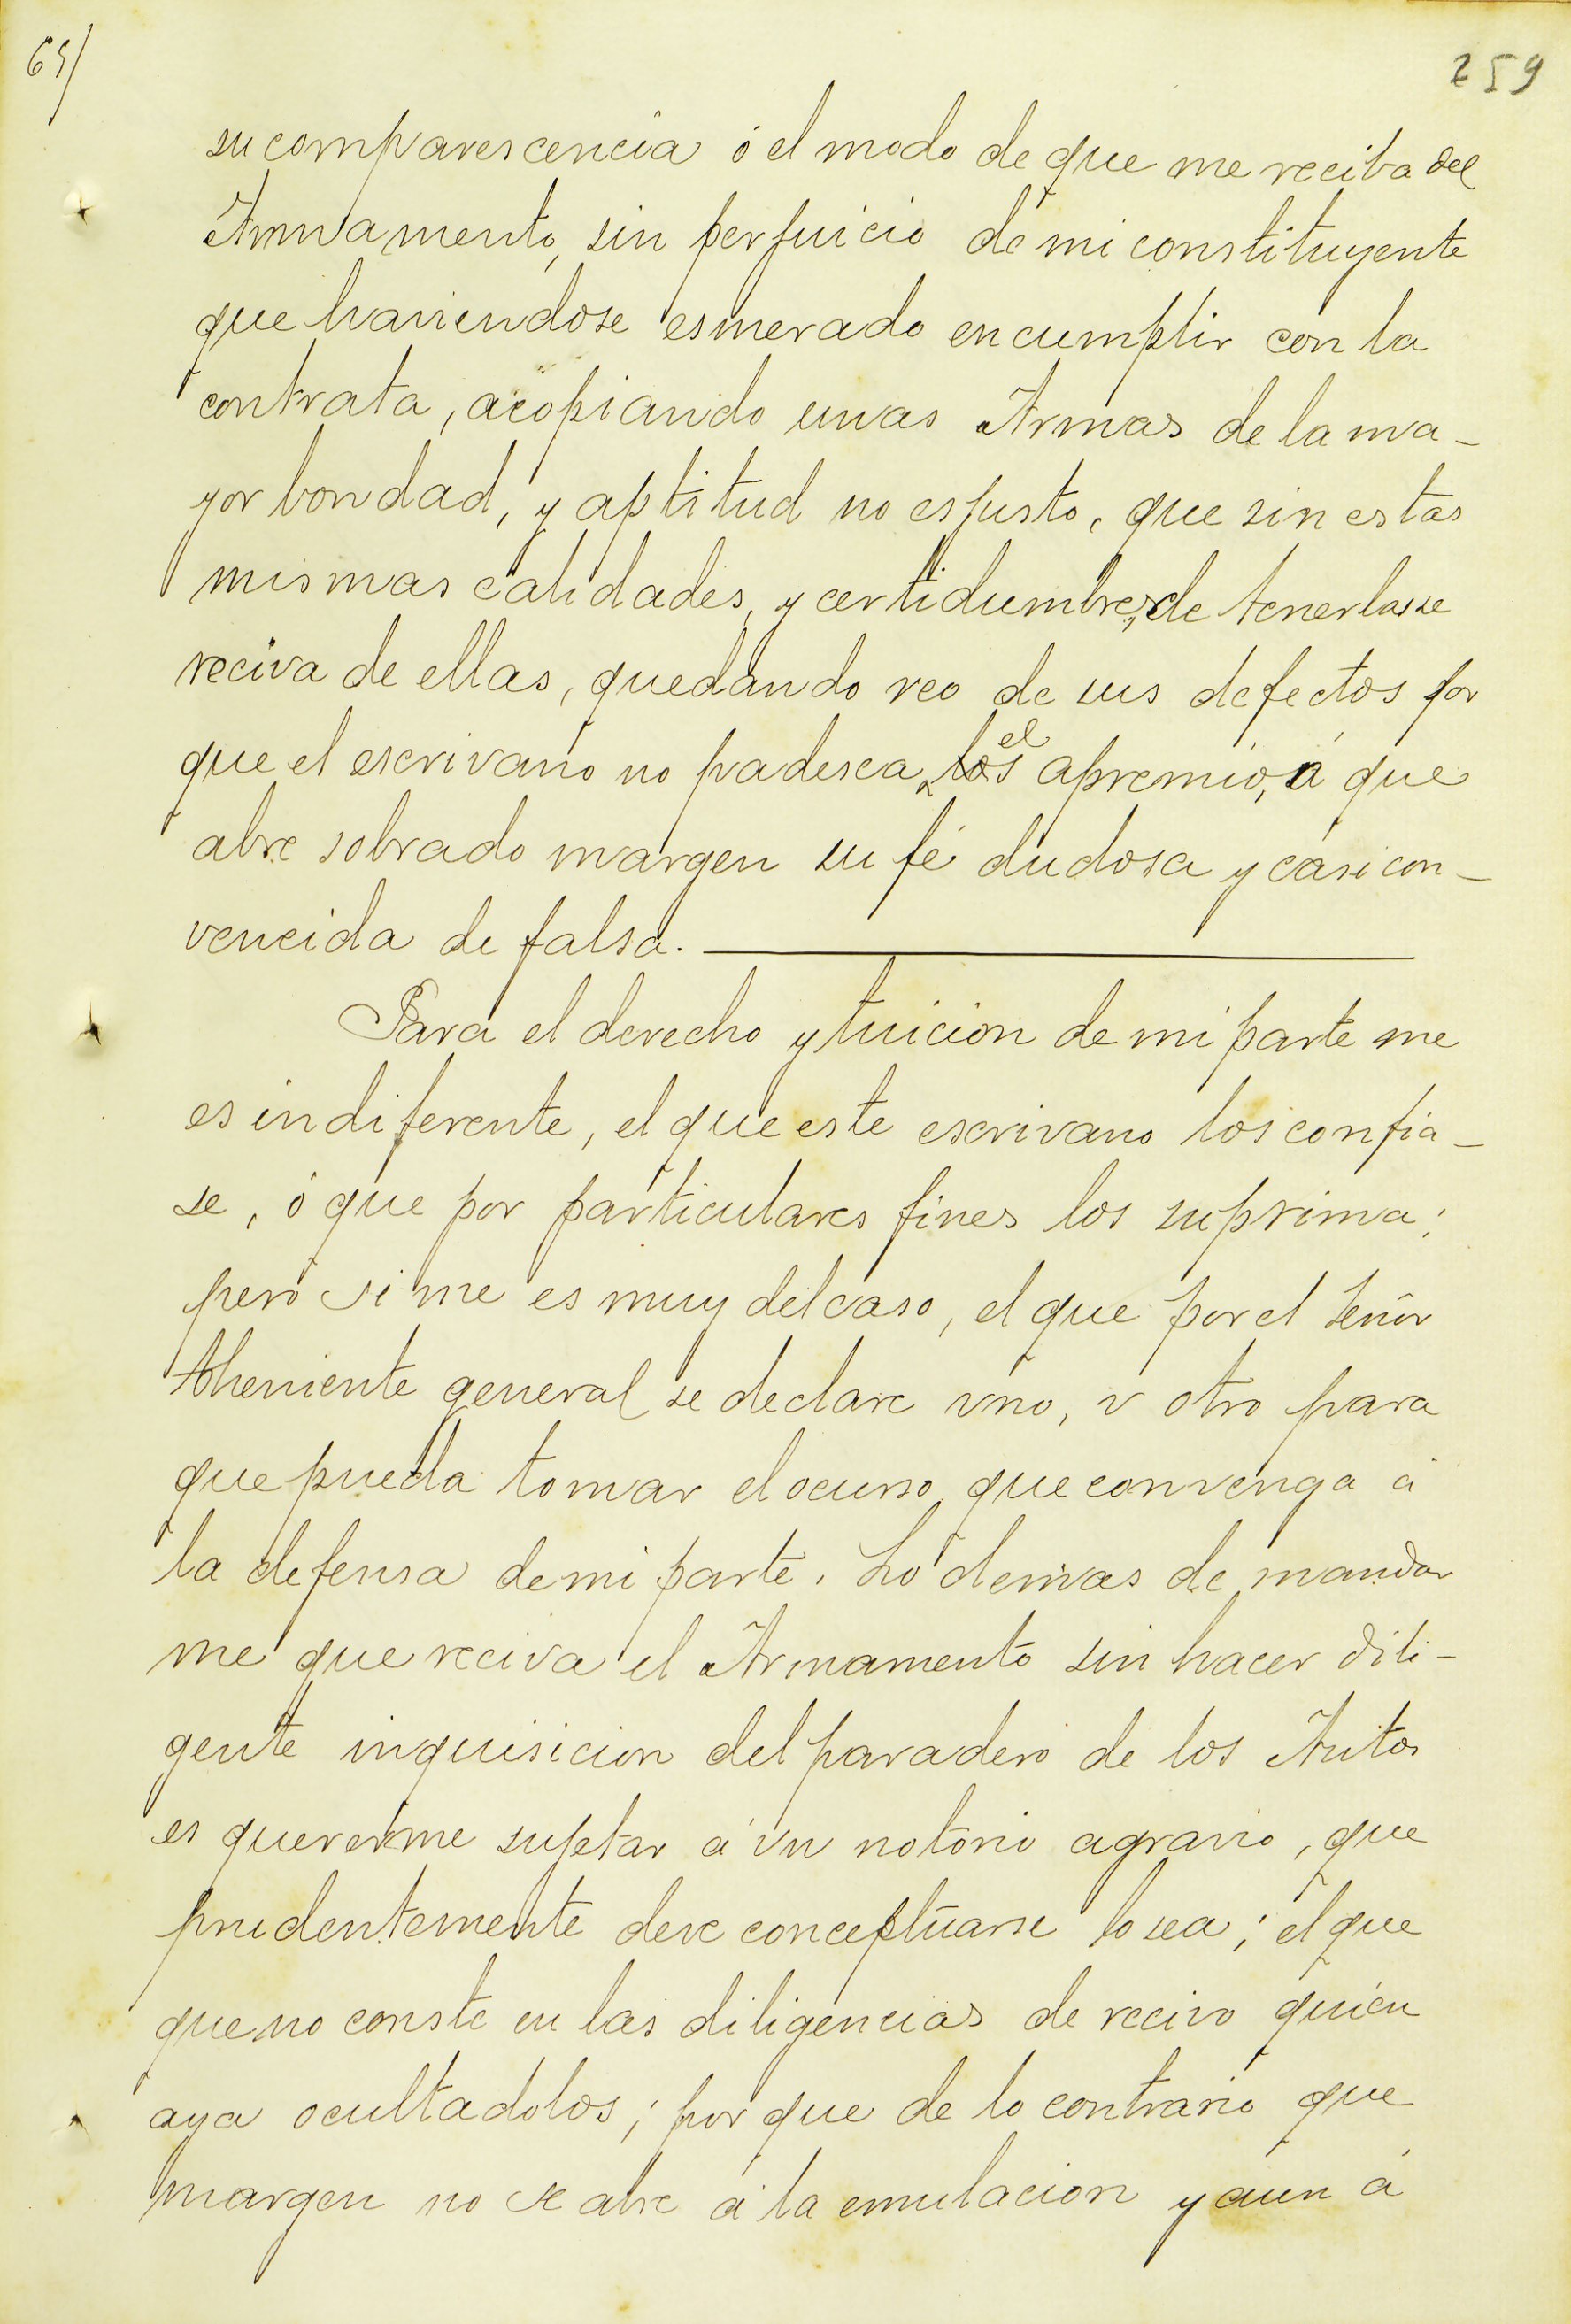 65/
259
su comparescencia ó el modo de que me reciba del
Armamento, sin perjuicio de mi constituyente
que haviendose esmerado en cumplir con la
contrata, acopiando unas Armas de la ma-
yor bondad, y aptitud no es justo, que sin estas
mismas calidades, y certidumbre, de tenerlas se
reciva de ellas, quedando reo de sus defectos por
que el escrivano no padesca, los el apremio, á que
abre sobrado margen su fé dudosa y casi con-
vencida de falsa.
Para el derecho y tuicion de mi parte me
es indiferente, el que este escrivano los confia-
se, ó que por particulares fines los suprima;
pero si me es muy del caso, el que por el Señor
theniente general se declare vno, v otro para
que pueda tomar el ocurso que convenga á
la defensa de mi parte. Lo demas de mandar
me que reciva el Armamento sin hacer dili-
gente inquisicion del paradero de los Autos
es quererme sujetar á vn notorio agravio, que
prudentemente deve conceptuarse lo sea; el que
que no conste en las diligencias de recivo quien
aya ocultadolos; por que de lo contrario que
margen no se abre á la emulacion y aun á